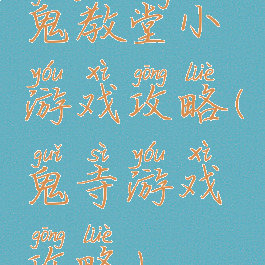 鬼教堂小
yóu xì gōng lüè
游戏攻略(
guǐ sì yóu xì
鬼寺游戏
gōng lüè
攻略)